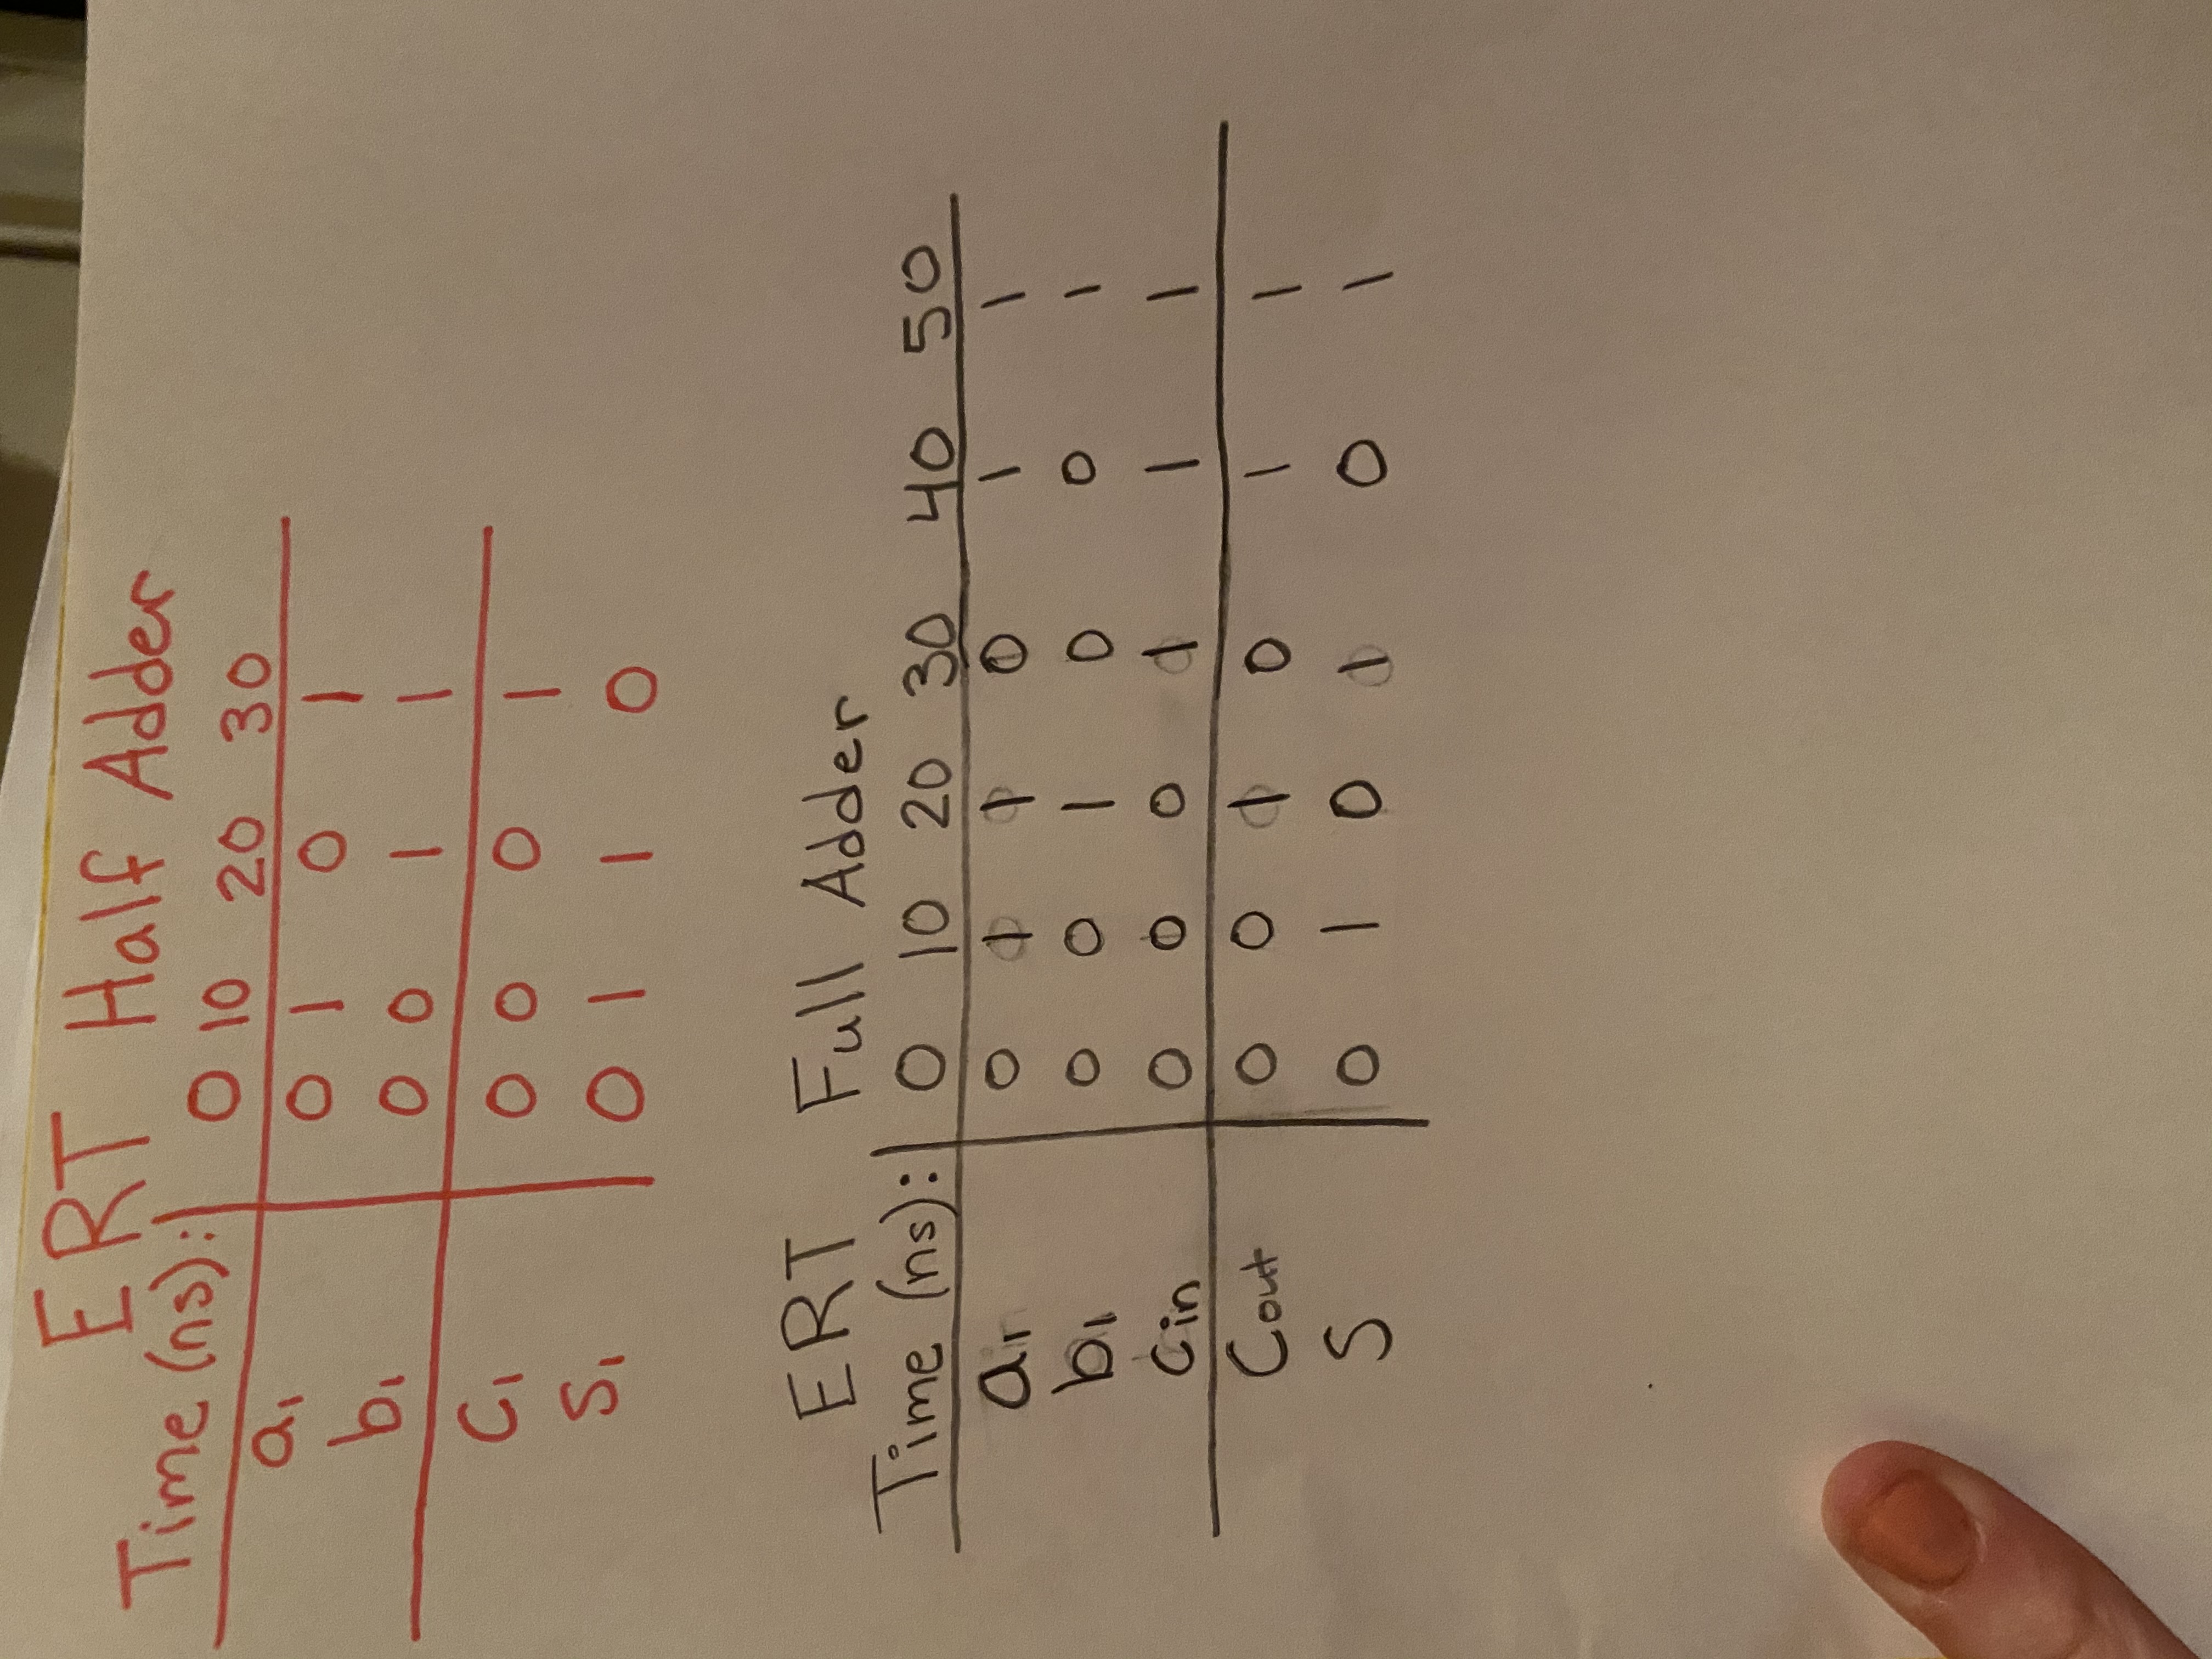 ERT Half Adder
Time (ns): 0 10 20 30
a1 0 1 0 1
b1 0 0 1 1
C1 0 0 0 1
S1 0 1 1 0
ERT Full Adder
Time (ns): 0 10 20 30 40 50
a1 0 1 1 0 1 1
b1 0 0 1 0 0 1
Cin 0 0 0 1 1 1
Cout 0 0 1 0 1 1
S 0 1 0 1 0 1